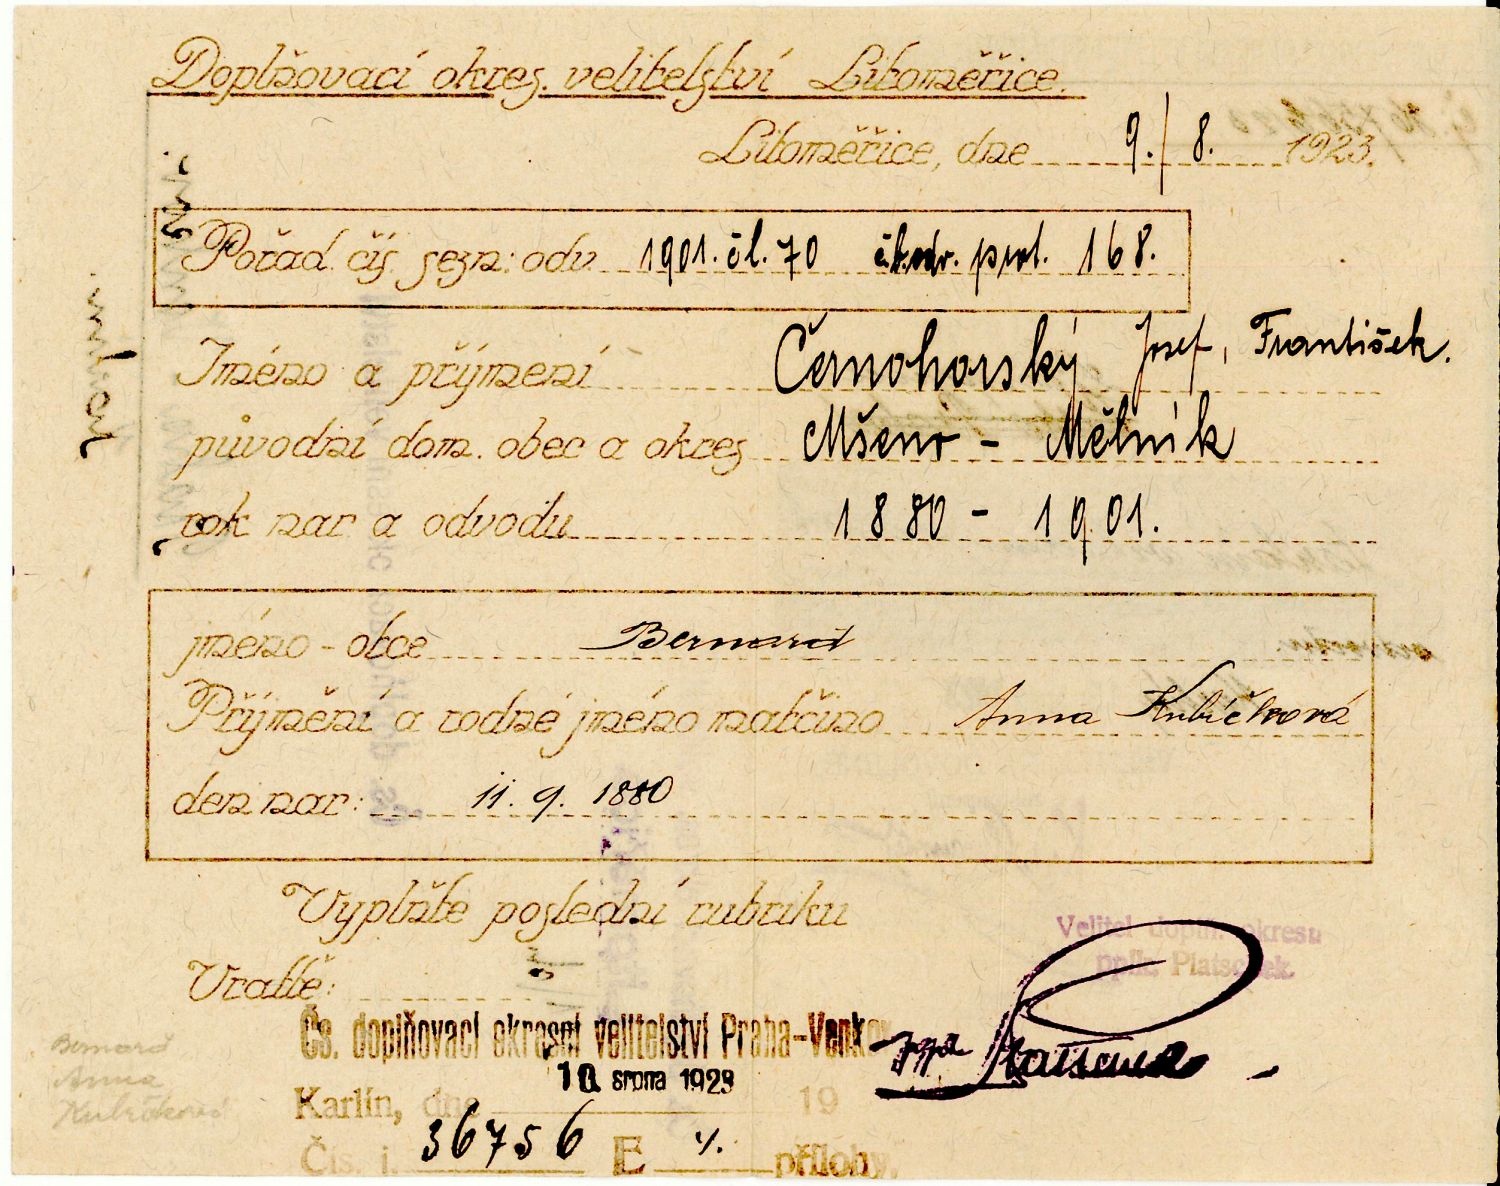 Doplňovací okres. velitelství Litoměřice.
Litoměřice, dne 9./8. 1923.
Pořad. čís. sezn. odv. 1901. čl. 70 prot. 168.
Jméno a příjmení Černohorský Josef, František.
původní dom. obec a okres Mšeno - Mělník
rok nar a odvodu 1880 - 1901.
jméno - otce Bernard
Příjmení a rodné jméno matčino Anna Kubíčková
den nar: 11. 9. 1880
Vyplňte poslední rubriku
Velitel doplň. okresu
Vraťte:
pplk. Platschek
Čs. doplňovací okresní velitelství Praha-Venkov
10 srpna 1923
Karlín, dne 19
Čís. j. 36756 E přílohy.
Bernard
Anna
Kubíčková